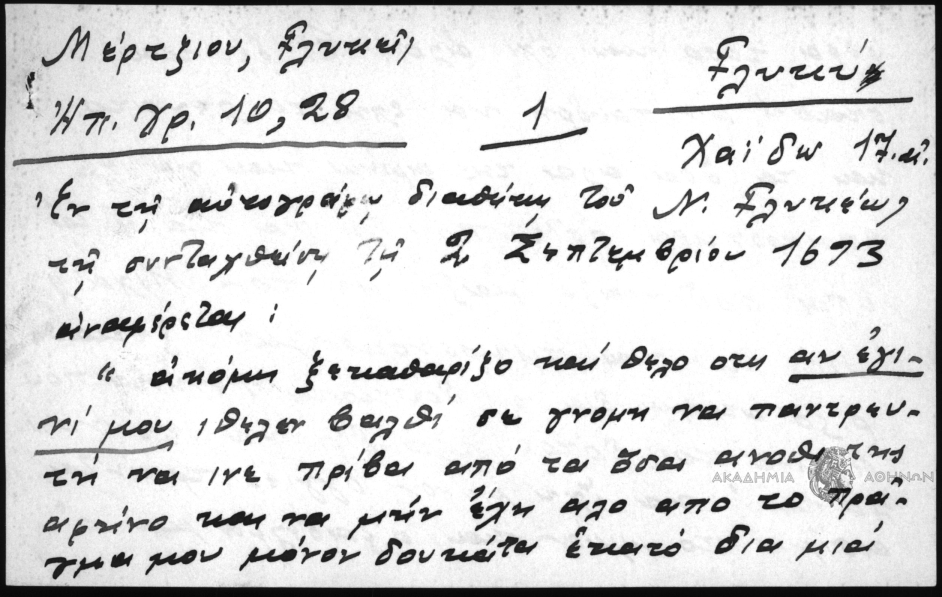 Μέρτζιου, Γλυκεῖς
Γλυκύς
Ἠπ. Χρ. 10, 28
1
Χαΐδω 17. κ.
Ἐν τῇ αὐτογράφῳ διαθήκῃ τοῦ Ν. Γλυκέως
τῇ συνταχθείσῃ τῇ 2 Σεπτεμβρίου 1693
ἀναφέρεται :
"ἀκόμη ξεκαθαρίζο καί θελο οτη αν ἐγι-
νί μου ιθελεν βαλθί σε γνομη να παντρευ-
τή νά ινε πρίβα από τα ὅσα ανοθι της
αφίνο και να μήν ἔχη αλο απο το πρᾶ-
γμα μου μόνον δουκάτα ἑκατό δια μιά
ΑΚΑΔΗΜΙΑ ΑΘΗΝΩΝ